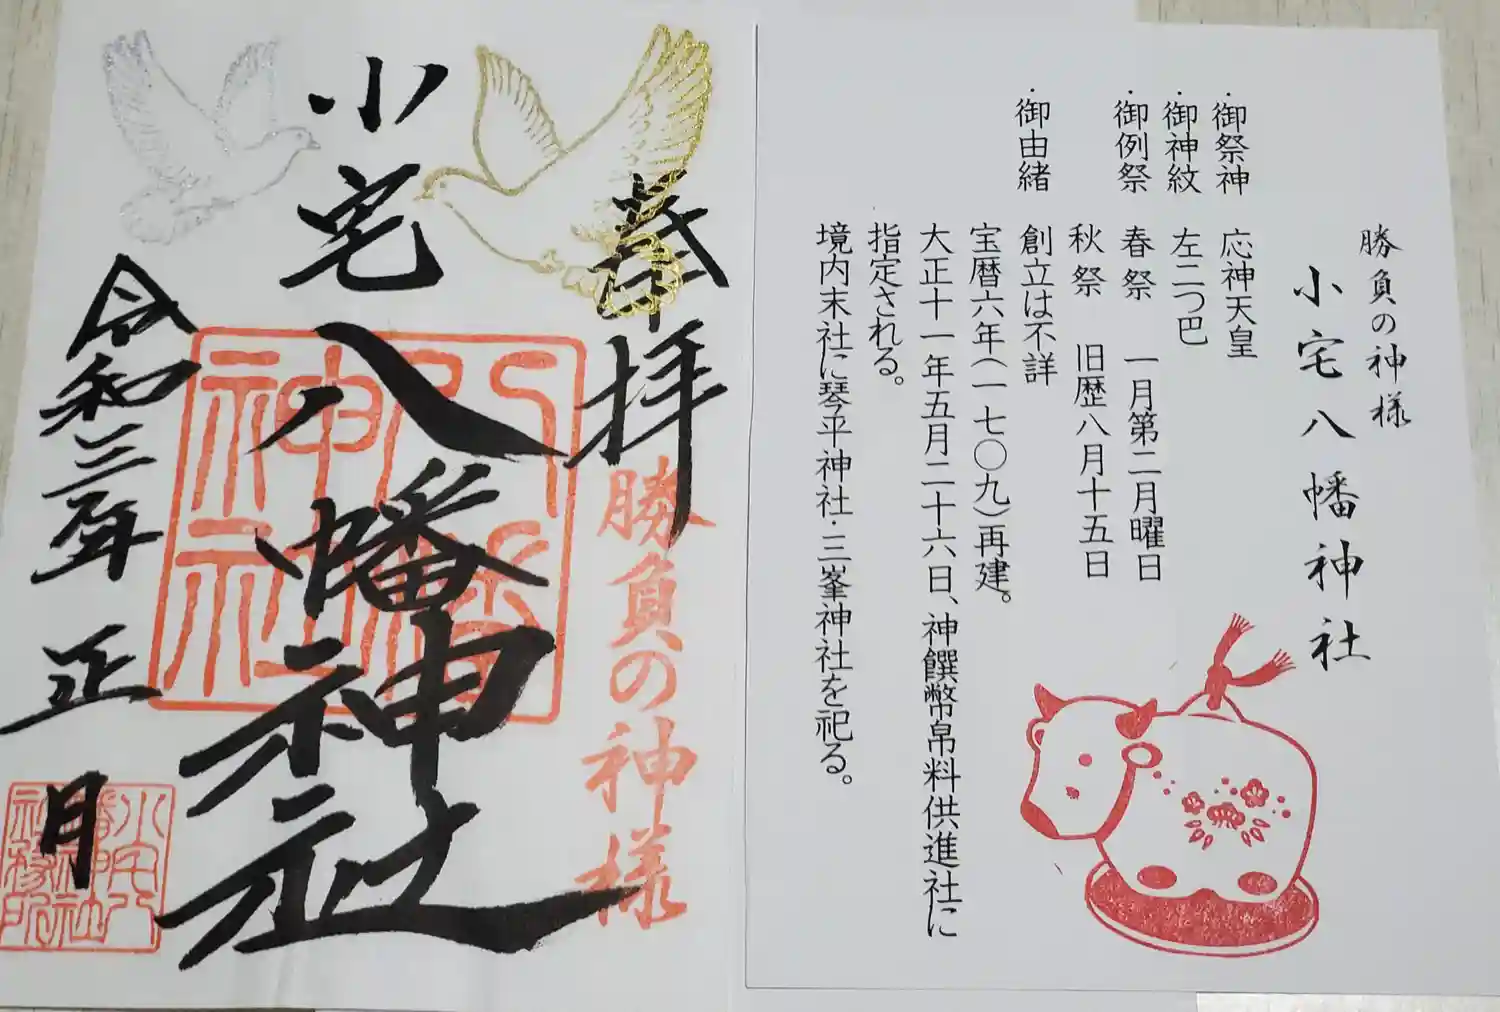 勝負の神様
小宅八幡神社
・御祭神 応神天皇
・御神紋 左二つ巴
・御例祭 春祭 一月第二月曜日
秋祭 旧歴八月十五日
・御由緒 創立は不詳
宝暦六年(一七〇九)再建。
大正十一年五月二十六日、神饌幣帛料供進社に
指定される。
境内末社に琴平神社・三峯神社を祀る。
奉拝
勝負の神様
小宅八幡神社
令和三年正月
八幡神社
小宅八幡神社務所